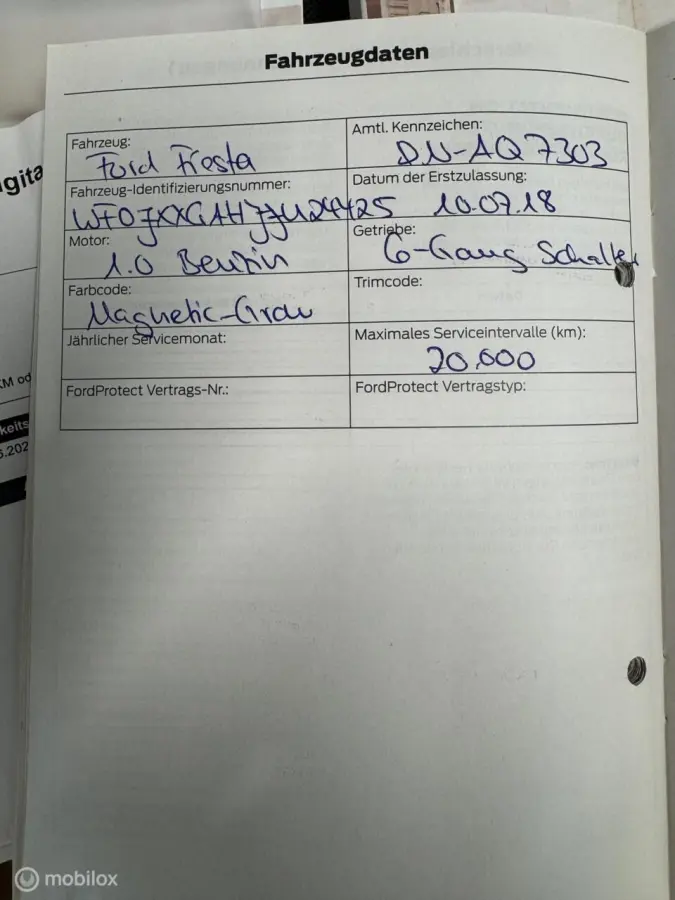 Fahrzeugdaten
Fahrzeug:
Ford Fiesta
Amtl. Kennzeichen:
DN-AQ 7303
Fahrzeug-Identifizierungsnummer:
WF0JXXGAHJJU24425
Datum der Erstzulassung:
10.07.18
Motor:
1.0 Benzin
Getriebe:
6-Gang Schalter
Farbcode:
Magnetic-Grau
Trimcode:
Jährlicher Servicemonat:
Maximales Serviceintervalle (km):
20.000
FordProtect Vertrags-Nr.:
FordProtect Vertragstyp:
KM od
keits
mobilox